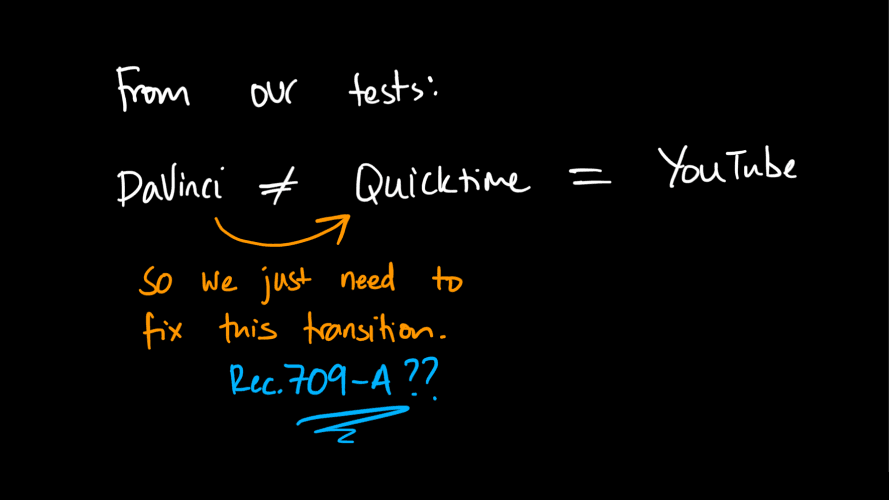 From our tests:
DaVinci ≠ Quicktime = YouTube
So we just need to
fix this transition.
Rec.709-A??